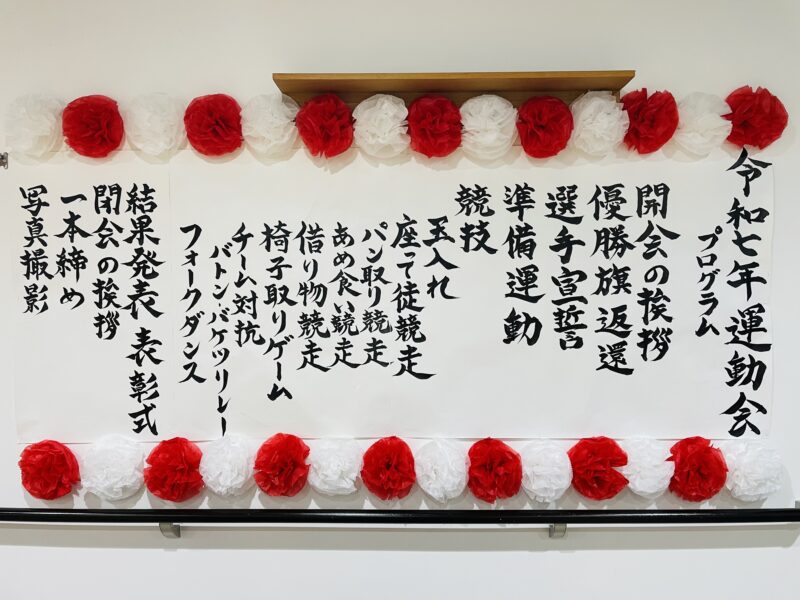 令和七年運動会
プログラム
開会の挨拶
優勝旗返還
選手宣誓
準備運動
競技
玉入れ
座って徒競走
パン取り競走
あめ食い競走
借り物競走
椅子取りゲーム
チーム対抗
バトン・バケツリレー
フォークダンス
結果発表 表彰式
閉会の挨拶
一本締め
写真撮影